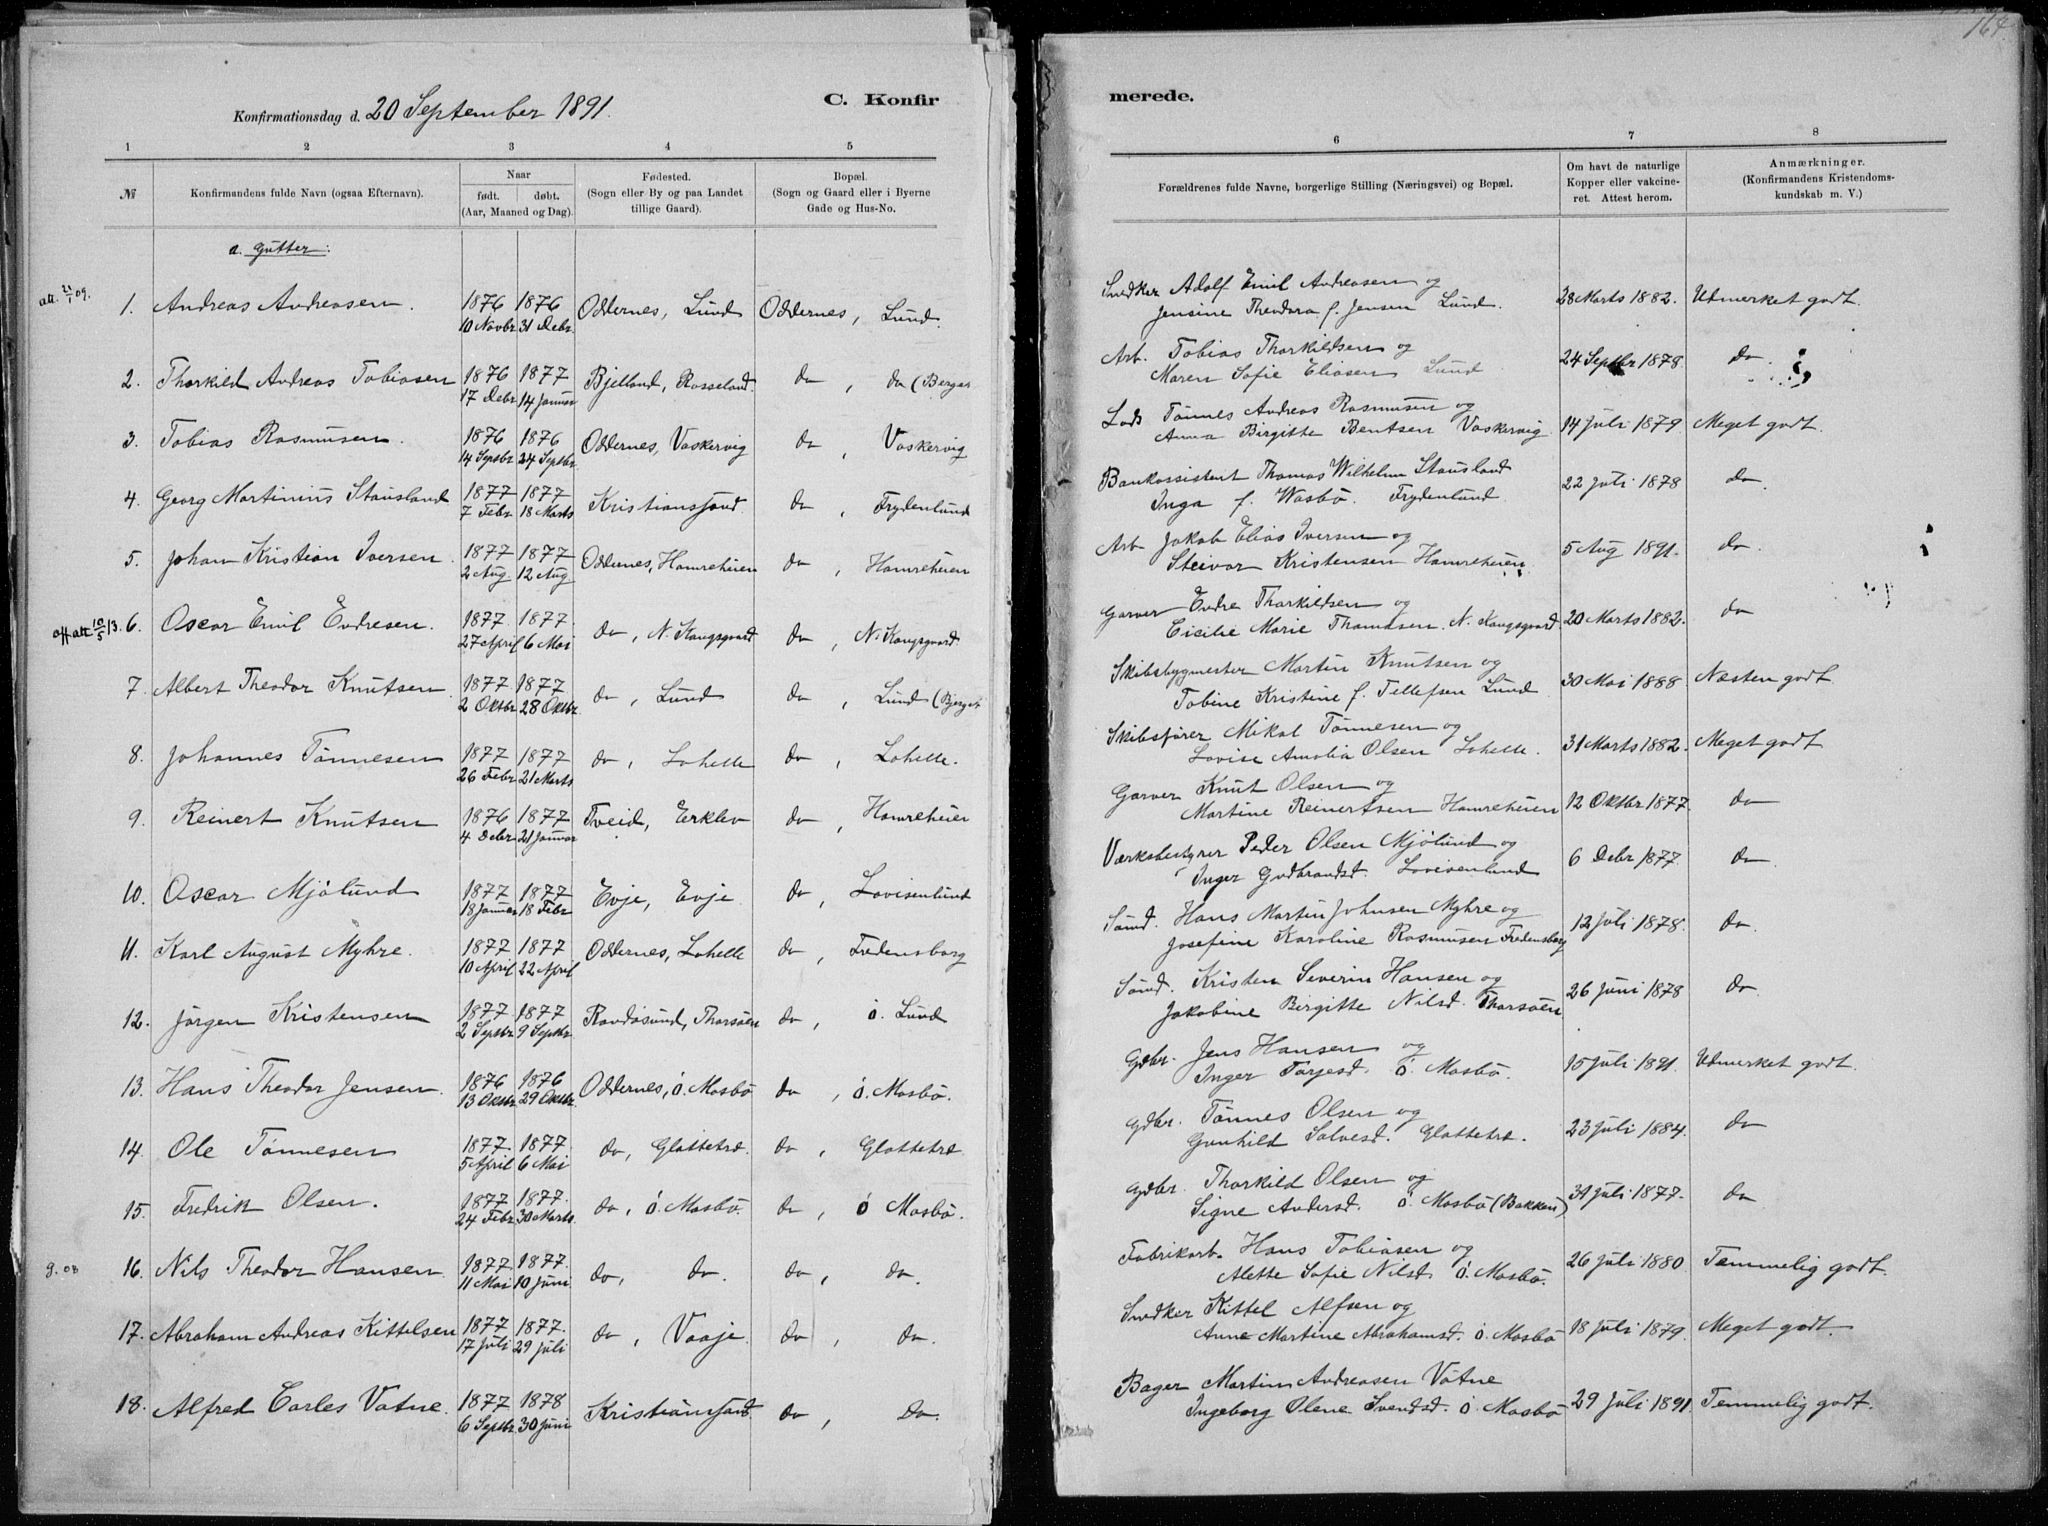 164
Konfirmationsdag d. 20 September 1891.
C. Konfir
merede.
1 2 3 4 5
6 7 8
№
Konfirmandens fulde Navn (ogsaa Efternavn).
Naar
født. døbt.
(Aar, Maaned og Dag).
Fødested.
(Sogn eller By og paa Landet
tillige Gaard).
Bopæl.
(Sogn og Gaard eller i Byerne
Gade og Hus-No.
Forældrenes fulde Navne, borgerlige Stilling (Næringsvei) og Bopæl.
Om havt de naturlige
Kopper eller vakcine-
ret. Attest herom.
Anmærkninger.
(Konfirmandens Kristendoms-
kundskab m. V.)
a. Gutter:
att. 21/1 09.
1. Andreas Andreasen. 1876 1876 Oddernes, Lund Oddernes, Lund.
10 Novbr 31 Debr.
Snedker Adolf Emil Andreasen og
Jensine Theodora f. Jensen Lund. 28 Marts 1882. Udmerket godt.
2. Thorkild Andreas Tobiasen 1876 1877 Bjelland, Rosseland. do, do (Berget
17 Debr 14 Januar
Arb. Tobias Thorkildsen og
Maren Sofie Eliasen Lund 24 Septbr 1878 do.
3. Tobias Rasmusen. 1876 1876 Oddernes, Vaskervig do, Vaskervig
14 Septbr 24 Septbr
Lods Tönnes Andreas Rasmusen og
Anna Birgitte Bentsen Vaskervig 14 Juli 1879. Meget godt.
4. Georg Martinius Stausland 1877 1877 Kristianssand. do, Frydenlund
7 Febr 18 Marts
Bankassistent Thomas Wilhelm Stausland
Inga f. Wasbö. Frydenlund. 22 Juli 1878 do.
5. Johan Kristian Iversen. 1877 1877 Oddernes, Hamreheien do, Hamreheien
2 Aug 12 Aug
Arb Jakob Elias Iversen og
Steivor Kristensen Hamreheien. 5 Aug 1891. do.
aff att 10/5 13.
6. Oscar Emil Endresen. 1877 1877. do, N. Kongsgaard do, N. Kongsgaard.
27 April 6 Mai
Garver Endre Thorkildsen og
Cicilie Marie Thomasen. N. Kongsgaard. 20 Marts 1882. do
7. Albert Theodor Knutsen 1877 1877. do, Lund do, Lund (Bjerget
2 Oktbr 28 Oktbr.
Skibsbygmester Martin Knutsen og
Tobine Kristine f. Tellefsen Lund 30 Mai 1888 Næsten godt
8. Johannes Tönnesen 1877 1877 do, Lahelle do, Lahelle.
26 Febr 21 Marts
Skibsförer Mikal Tönnesen og
Lovise Amalia Olsen Lahelle. 31 Marts 1882. Meget godt
9. Reinert Knutsen 1876 1877 Tveid, Erklev do, Hamreheien
4 Debr 21 Januar
Garver Knut Olsen og
Martine Reinertsen Hamreheien 12 Oktbr 1877. do
10. Oscar Mjölund 1877 1877 Evje, Evje do, Lovisenlund
18 Januar 18 Febr
Værksbestyrer Peder Olsen Mjölund og
Inger Gudbrandsd. Lovisenlund 6 Debr 1877. do.
11. Karl August Myhre. 1877 1877 Oddernes, Lahelle do, Fredensborg
10 April 22 April
Sömd. Hans Martin Johnsen Myhre og
Josefine Karoline Rasmusen Fredensborg 12 Juli 1878. do.
12. Jörgen Kristensen 1877 1877 Randösund, Tharsöen do, ö. Lund
2 Septbr 9 Septbr
Sömd. Kristen Severin Hansen og
Jakobine Birgitte Nilsd. Tharsöen 26 Juni 1878 do.
13. Hans Theodor Jensen. 1876 1876 Oddernes, ö. Mosbö do, ö. Mosbö.
13 Oktbr 29 Oktbr.
Gdbr. Jens Hansen og
Inger Tarjesd. ö. Mosbö. 15 Juli 1891. Udmerket godt.
14. Ole Tönnesen 1877. 1877. do, Glattetræ. do, Glattetræ
5 April 6 Mai
Gdbr. Tönnes Olsen og
Gunhild Salvesd. Glattetræ. 23 Juli 1884. do
15. Fredrik Olsen. 1877 1877. do, ö. Mosbö. do, ö Mosbö.
24 Febr 30 Marts.
Gdbr. Thorkild Olsen og
Signe Andersd. ö. Mosbö (Bakken). 31 Juli 1877. do
g. 03
16. Nils Theodor Hansen. 1877 1877. do, do. do, do.
11 Mai 10 Juni
Fabrikarb. Hans Tobiasen og
Alette Sofie Nilsd. ö. Mosbö. 26 Juli 1880 Temmelig godt.
17. Abraham Andreas Kittelsen 1877 1877. do, Vaaje. do, do.
17 Juli 29 Juli
Snedker Kittel Alfsen og
Anne Martine Abrahamsd. ö. Mosbö 18 Juli 1879. Meget godt.
18. Alfred Carles Vatne. 1877 1878 Kristianssand. do, do.
6 Septbr 30 Juni
Bager Martin Andreasen Vatne
Ingeborg Olene Svendsd. ö. Mosbö 29 Juli 1891. Temmelig godt.